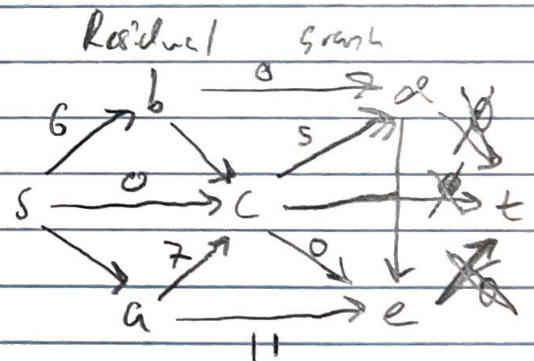 Residual Graph
b 0 d
6 5 0
s 0 c 0 t
7 0 0
a e
11